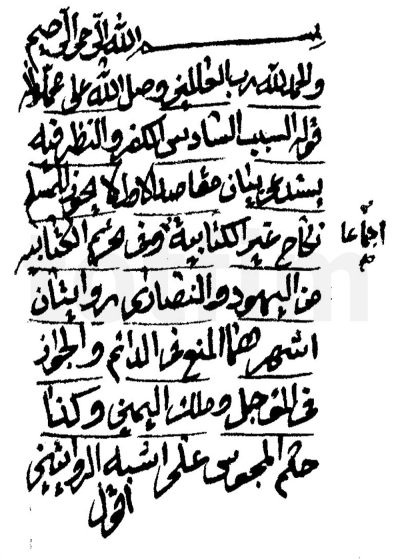 بسم الله الرحمن الرحيم
والحمد لله رب العالمين وصلى الله على محمد وآله
قوله السبب السادس الكفر والنظر فيه
يستدعي بيان مقاصد الاول لا يجوز للمسلم
نكاح غير الكتابية وفي تحريم الكتابية
اجماعا
من اليهود والنصارى روايتان
اشهرهما المنع في الدائم والجواز
في المؤجل وملك اليمين وكذا
حكم المجوس على اشبه الروايتين
اقول